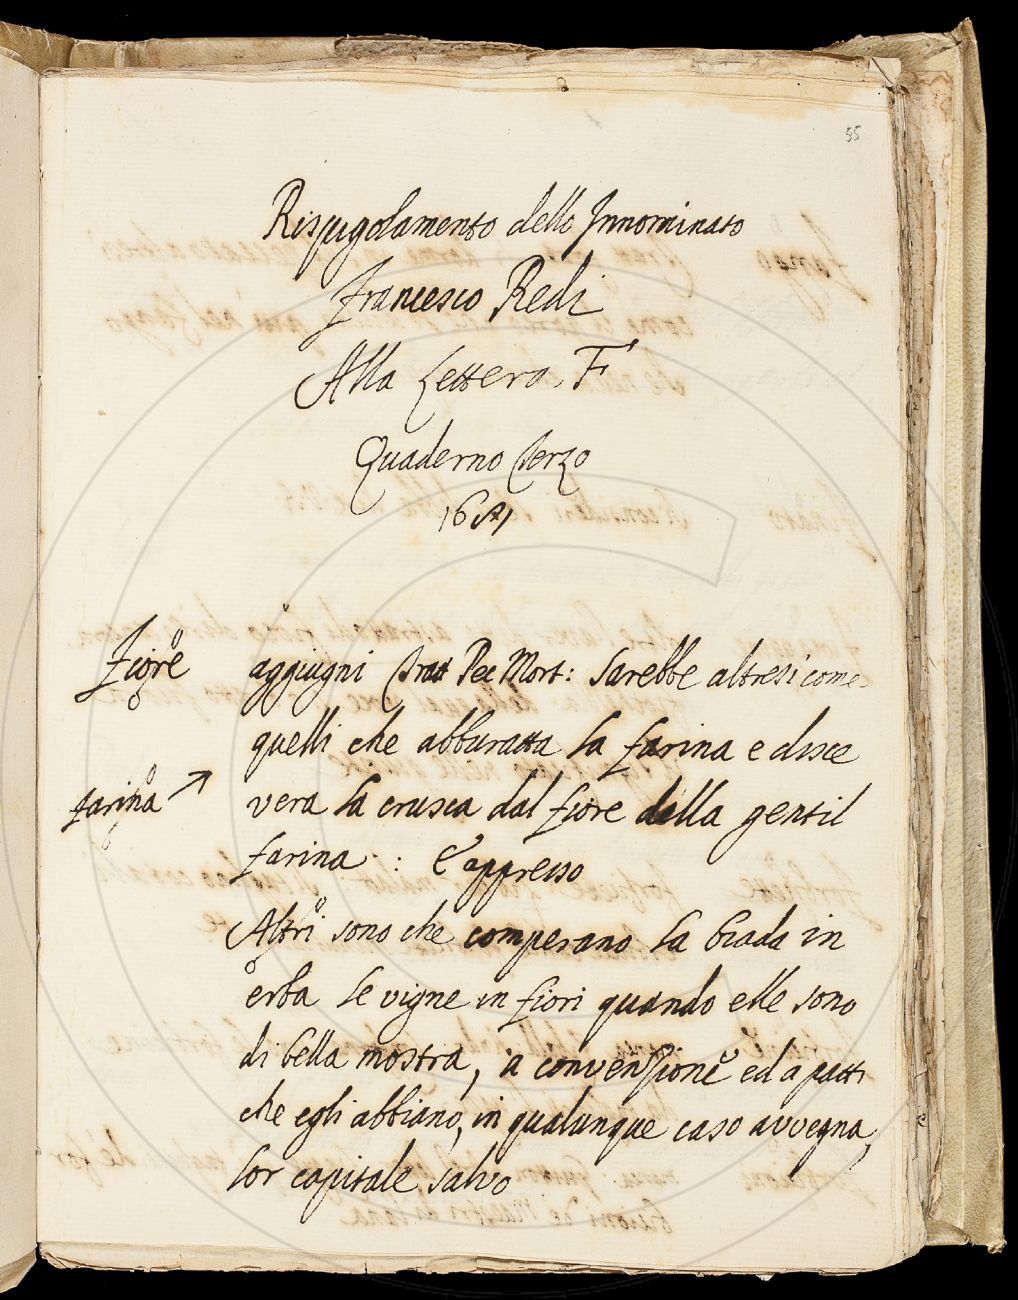 55
Rispigolamento dello Innominato
Francesco Redi
Alla Lettera F
Quaderno Terzo
Fiore aggiugni Tratt Pec Mort: Sarebbe altresì come
quelli che abburatta la farina e disce
farina vera la crusca dal fiore della gentil
farina : E appresso
Altri sono che comperano la biada in
erba le vigne in fiori quando elle sono
di bella mostra, a convenzione ed a patti
che egli abbiano, in qualunque caso avvegna,
lor capitale salvo